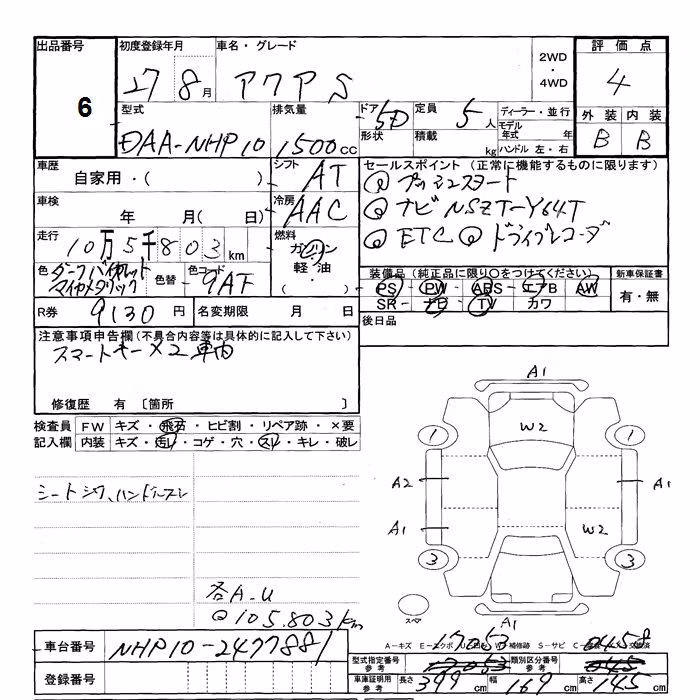 出品番号
6
初度登録年月
27 8 月
車名・グレード
アクア S
2WD
・
4WD
評価点
4
外装 内装
B B
型式
DAA-NHP10
排気量
1500 cc
ドア 5D
形状
定員 5 人
積載 kg
ディーラー・並行
モデル年式 年
ハンドル 左・右
車歴
自家用・( )
シフト
AT
車検
年 月( 日)
冷房
AAC
走行
10万5千803 km
燃料
ガソリン
軽油・
( )
色 ダークバイオレット
マイカメタリック
色替
色コード
9AF
R券 9130 円
名変期限 月 日
セールスポイント(正常に機能するものに限ります)
◎プッシュスタート
◎ナビNSZT-Y64T
◎ETC ◎ドライブレコーダ
装備品(純正品に限り○をつけてください)
PS・PW・ABS・エアB・AW
SR・ナビ・TV・カワ
新車保証書
有・無
後日品
注意事項申告欄(不具合内容等は具体的に記入して下さい)
スマートキー×2 車内
修復歴 有〔箇所 〕
検査員記入欄
FW キズ・飛石・ヒビ割・リペア跡・×要
内装 キズ・汚レ・コゲ・穴・スレ・キレ・破レ
シートシワ、ハンドルスレ
各A.U
◎105.803km
A1
W2
1 1
A2 A1
A1 W2
3 3
スペア
A1
車台番号 NHP10-2477881
登録番号
A-キズ E-エクボ
型式指定番号 参考 17053
類別区分番号 参考
車庫証明用 参考 長さ 399 cm 幅 169 cm 高さ 145 cm